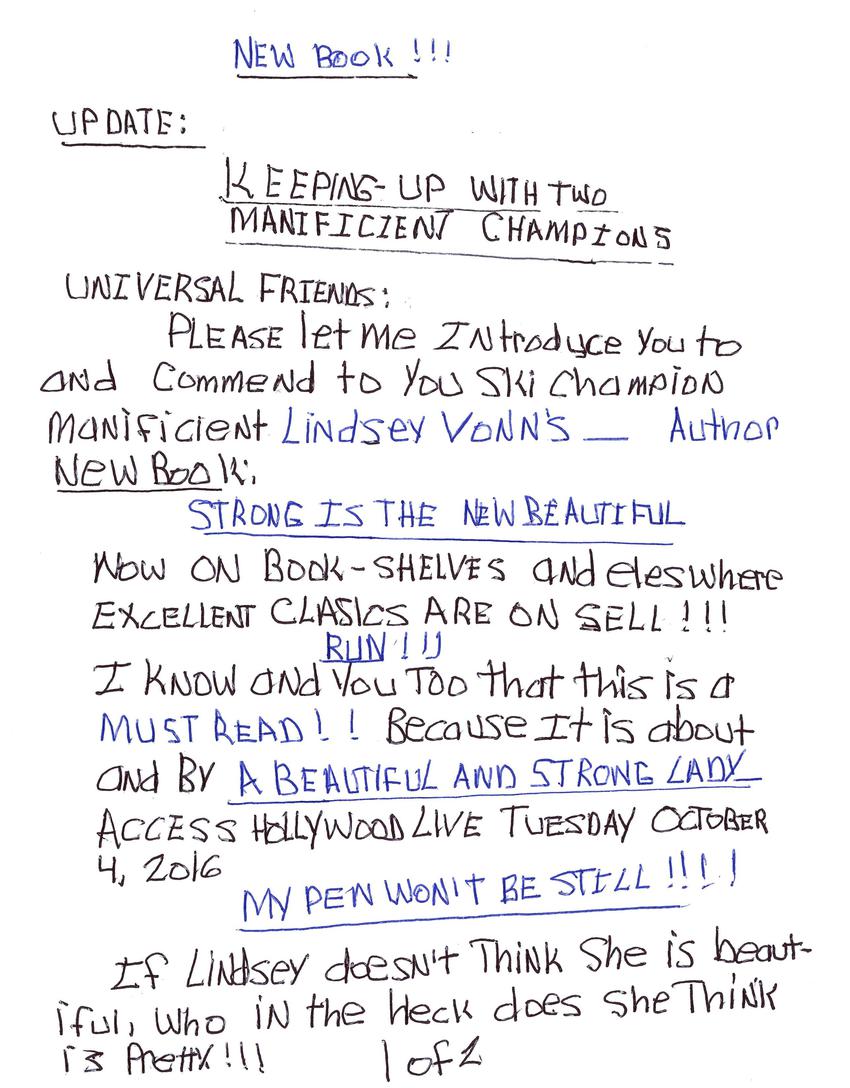 NEW BOOK !!!
UPDATE:
KEEPING-UP WITH TWO
MANIFICIENT CHAMPIONS
UNIVERSAL FRIENDS:
PLEASE let me INtroduce you to
and Commend to you Ski Champion
Manificient Lindsey VONN'S — Author
New Book:
STRONG IS THE NEW BEAUTIFUL
NOW ON BOOK-SHELVES and eleswhere
EXCELLENT CLASICS ARE ON SELL!!!
RUN!!!
I KNOW and You Too that this is a
MUST READ!! Because It is about
and By A BEAUTIFUL AND STRONG LADY
ACCESS HOLLYWOOD LIVE TUESDAY OCTOBER
4, 2016
MY PEN WON'T BE STILL!!!!
If Lindsey doesn't Think She is beaut-
iful, Who in the Heck does she Think
is Pretty!!!
1 of 2